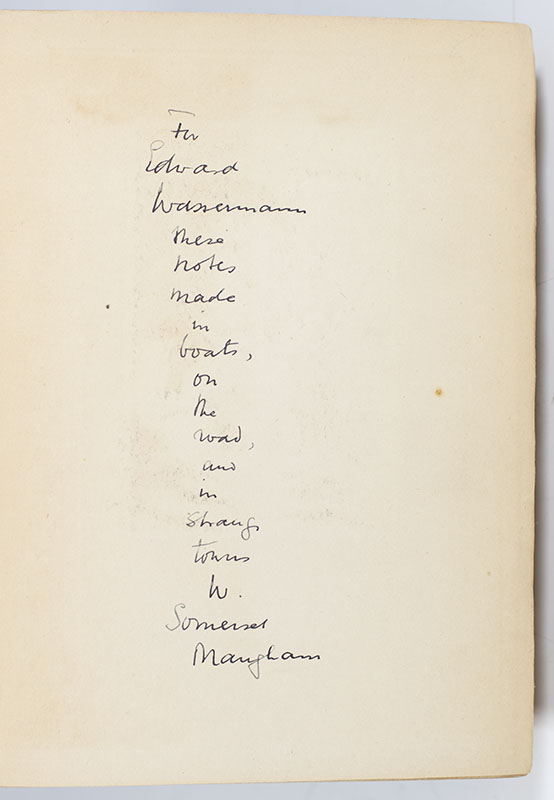 For
Edward
Wassermann
these
notes
made
in
boats,
on
the
road,
and
in
strange
towns
W.
Somerset
Maugham